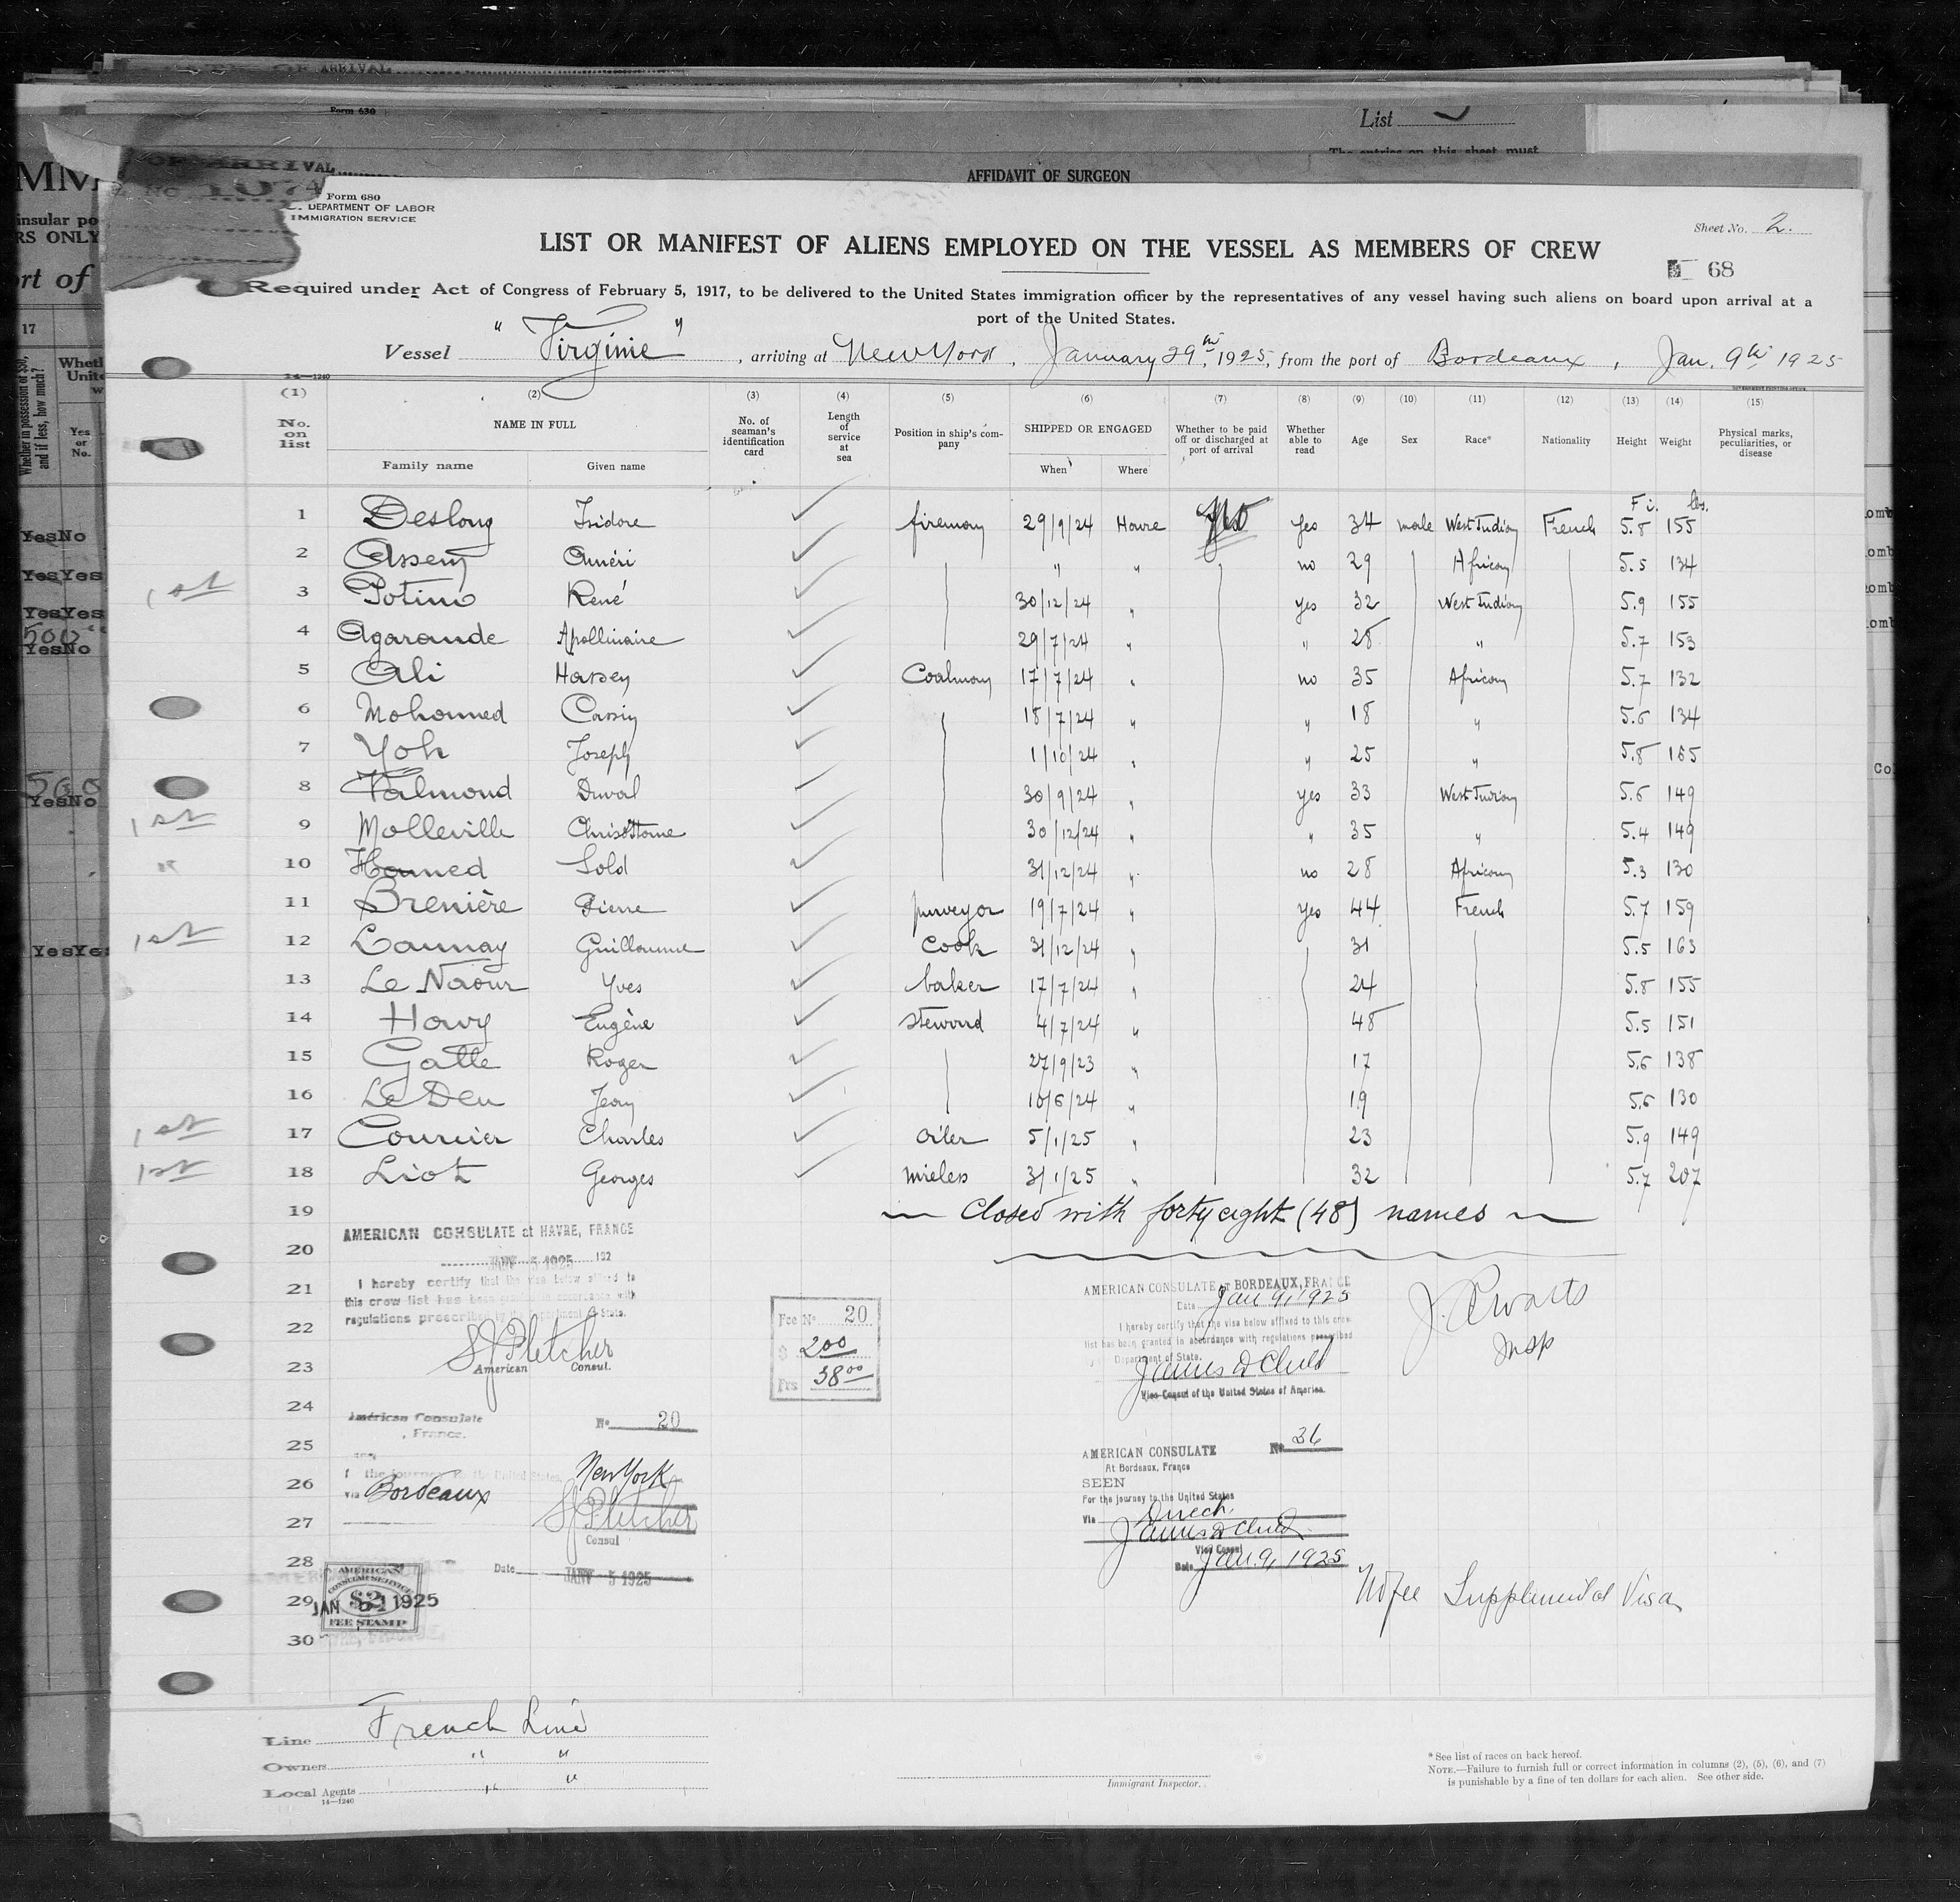 DATE OF ARRIVAL
Form 630
List
The entries on this sheet must
AFFIDAVIT OF SURGEON
OF ARRIVAL
No 1074
Form 680
DEPARTMENT OF LABOR
IMMIGRATION SERVICE
Sheet No. 2.
LIST OR MANIFEST OF ALIENS EMPLOYED ON THE VESSEL AS MEMBERS OF CREW
68
Required under Act of Congress of February 5, 1917, to be delivered to the United States immigration officer by the representatives of any vessel having such aliens on board upon arrival at a
port of the United States.
Vessel "Virginie", arriving at New York, January 29th, 1925, from the port of Bordeaux, Jan. 9th 1925
14—1240
(1) (2) (3) (4) (5) (6) (7) (8) (9) (10) (11) (12) (13) (14) (15)
No. on list NAME IN FULL No. of seaman's identification card Length of service at sea Position in ship's company SHIPPED OR ENGAGED Whether to be paid off or discharged at port of arrival Whether able to read Age Sex Race* Nationality Height Weight Physical marks, peculiarities, or disease
Family name Given name When Where
F i. lbs.
1 Deslong Isidore fireman 29/9/24 Havre No Yes 34 male West Indian French 5.8 155
2 Assem Améri " " no 29 African 5.5 134
1st 3 Potino René 30/12/24 " yes 32 West Indian 5.9 155
4 Agarande Apollinaire 29/7/24 " " 28 " 5.7 153
5 Ali Hassen Coalman 17/7/24 " no 35 African 5.7 132
6 Mohamed Cassin 18/7/24 " " 18 " 5.6 134
7 Yoh Joseph 1/10/24 " " 25 " 5.8 165
8 Valmond Duval 30/9/24 " yes 33 West Indian 5.6 149
1st 9 Molleville Chrisostome 30/12/24 " " 35 " 5.4 149
10 Hamed Sold 31/12/24 " no 28 African 5.3 130
11 Brenière Pierre purveyor 19/7/24 " Yes 44 French 5.7 159
1st 12 Launay Guillaume cook 31/12/24 " 31 5.5 163
13 Le Naour Yves baker 17/7/24 " 24 5.8 155
14 Havy Eugène steward 4/7/24 " 48 5.5 151
15 Gatte Roger 27/9/23 " 17 5.6 138
16 Le Deu Jean 10/6/24 " 19 5.6 130
1st 17 Courier Charles oiler 5/1/25 " 23 5.9 149
1st 18 Liot Georges wireless 3/1/25 " 32 5.7 207
19 Closed with forty eight (48) names
20
21
22
23
24
25
26
27
28
29
30
AMERICAN CONSULATE at HAVRE, FRANCE
JANV 5 1925 192
I hereby certify that the visa below affixed to
this crew list has been granted in accordance with
regulations prescribed by the Department of State.
SJ Fletcher
American Consul.
Fee No 20
$ 2 00
Frs 38 00
AMERICAN CONSULATE at BORDEAUX, FRANCE
Date Jan 9, 1925
I hereby certify that the visa below affixed to this crew
list has been granted in accordance with regulations prescribed
by Department of State.
James D Child
Vice Consul of the United States of America.
Insp
American Consulate
, France.
No 20
the journey to the United States, New York
via Bordeaux
SJ Fletcher
Consul
Date JANV 5 1925
AMERICAN CONSULAR SERVICE
$2
FEE STAMP
JAN 5 1925
AMERICAN CONSULATE No 36
At Bordeaux, France
SEEN
For the journey to the United States
Via Direct.
James D Child
Vice Consul
Date Jan. 9, 1925
No fee Supplemental Visa
Line French Line
Owners " "
Local Agents " "
14—1240
Immigrant Inspector.
* See list of races on back hereof.
NOTE.—Failure to furnish full or correct information in columns (2), (5), (6), and (7)
is punishable by a fine of ten dollars for each alien. See other side.